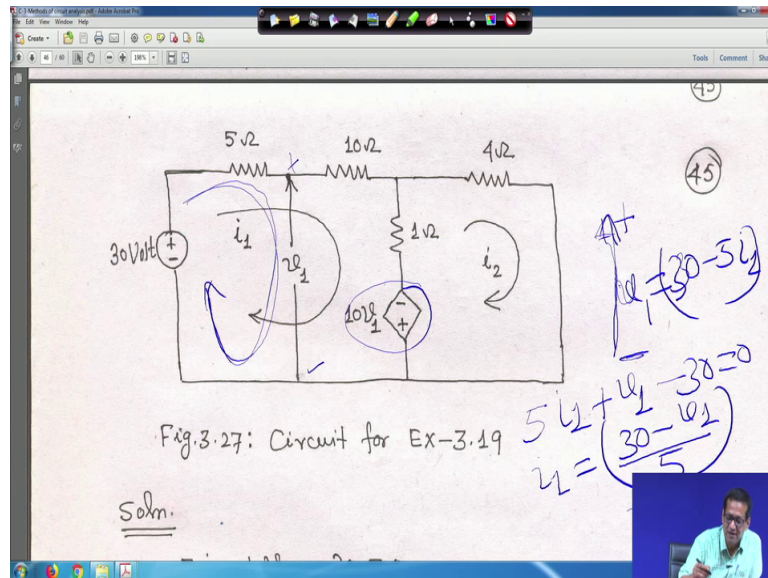 C-3-Methods of circuit analysis.pdf - Adobe Acrobat Pro
File Edit View Window Help
Create
46 / 60
198%
Tools Comment
45
5Ω
10Ω
4Ω
45
30 Volt
i1
v1
1Ω
i2
10v1
+
v1 = (30 - 5i1)
5i1 + v1 - 30 = 0
i1 = (30 - v1) / 5
Fig.3.27: Circuit for EX-3.19
Soln.